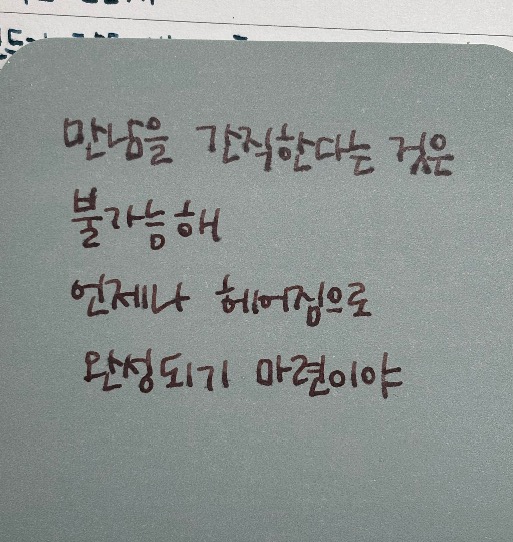 만남을 간직한다는 것은
불가능해
언제나 헤어짐으로
완성되기 마련이야